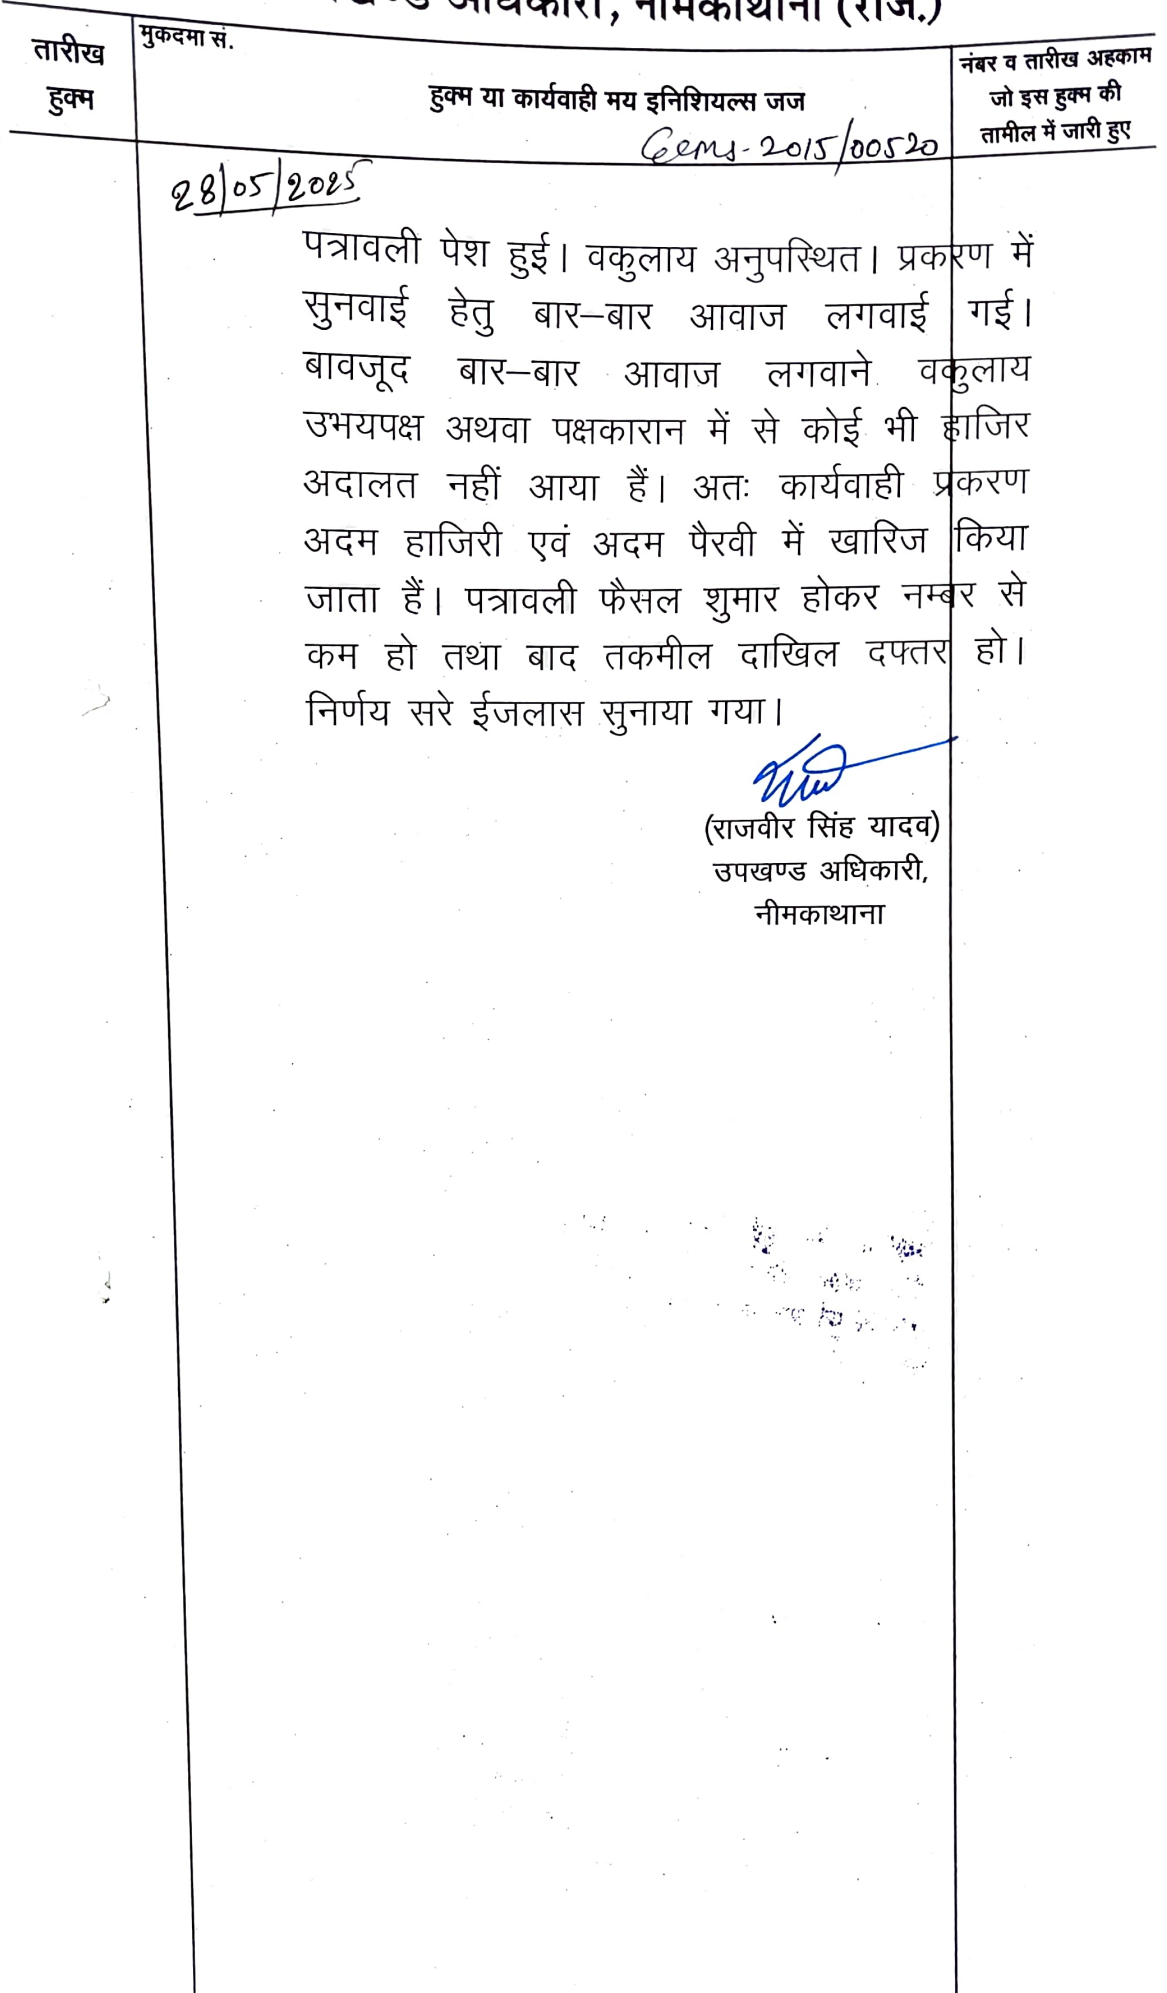 अधिकारी, नीमकाथाना (राज.)
तारीख
हुक्म
मुकदमा सं.
हुक्म या कार्यवाही मय इनिशियल्स जज
नंबर व तारीख अहकाम
जो इस हुक्म की
तामील में जारी हुए
2015/00520
28/05/2025
पत्रावली पेश हुई। वकुलाय अनुपस्थित। प्रकरण में
सुनवाई हेतु बार–बार आवाज लगवाई गई।
बावजूद बार–बार आवाज लगवाने वकुलाय
उभयपक्ष अथवा पक्षकारान में से कोई भी हाजिर
अदालत नहीं आया हैं। अतः कार्यवाही प्रकरण
अदम हाजिरी एवं अदम पैरवी में खारिज किया
जाता हैं। पत्रावली फैसल शुमार होकर नम्बर से
कम हो तथा बाद तकमील दाखिल दफ्तर हो।
निर्णय सरे ईजलास सुनाया गया।
(राजवीर सिंह यादव)
उपखण्ड अधिकारी,
नीमकाथाना